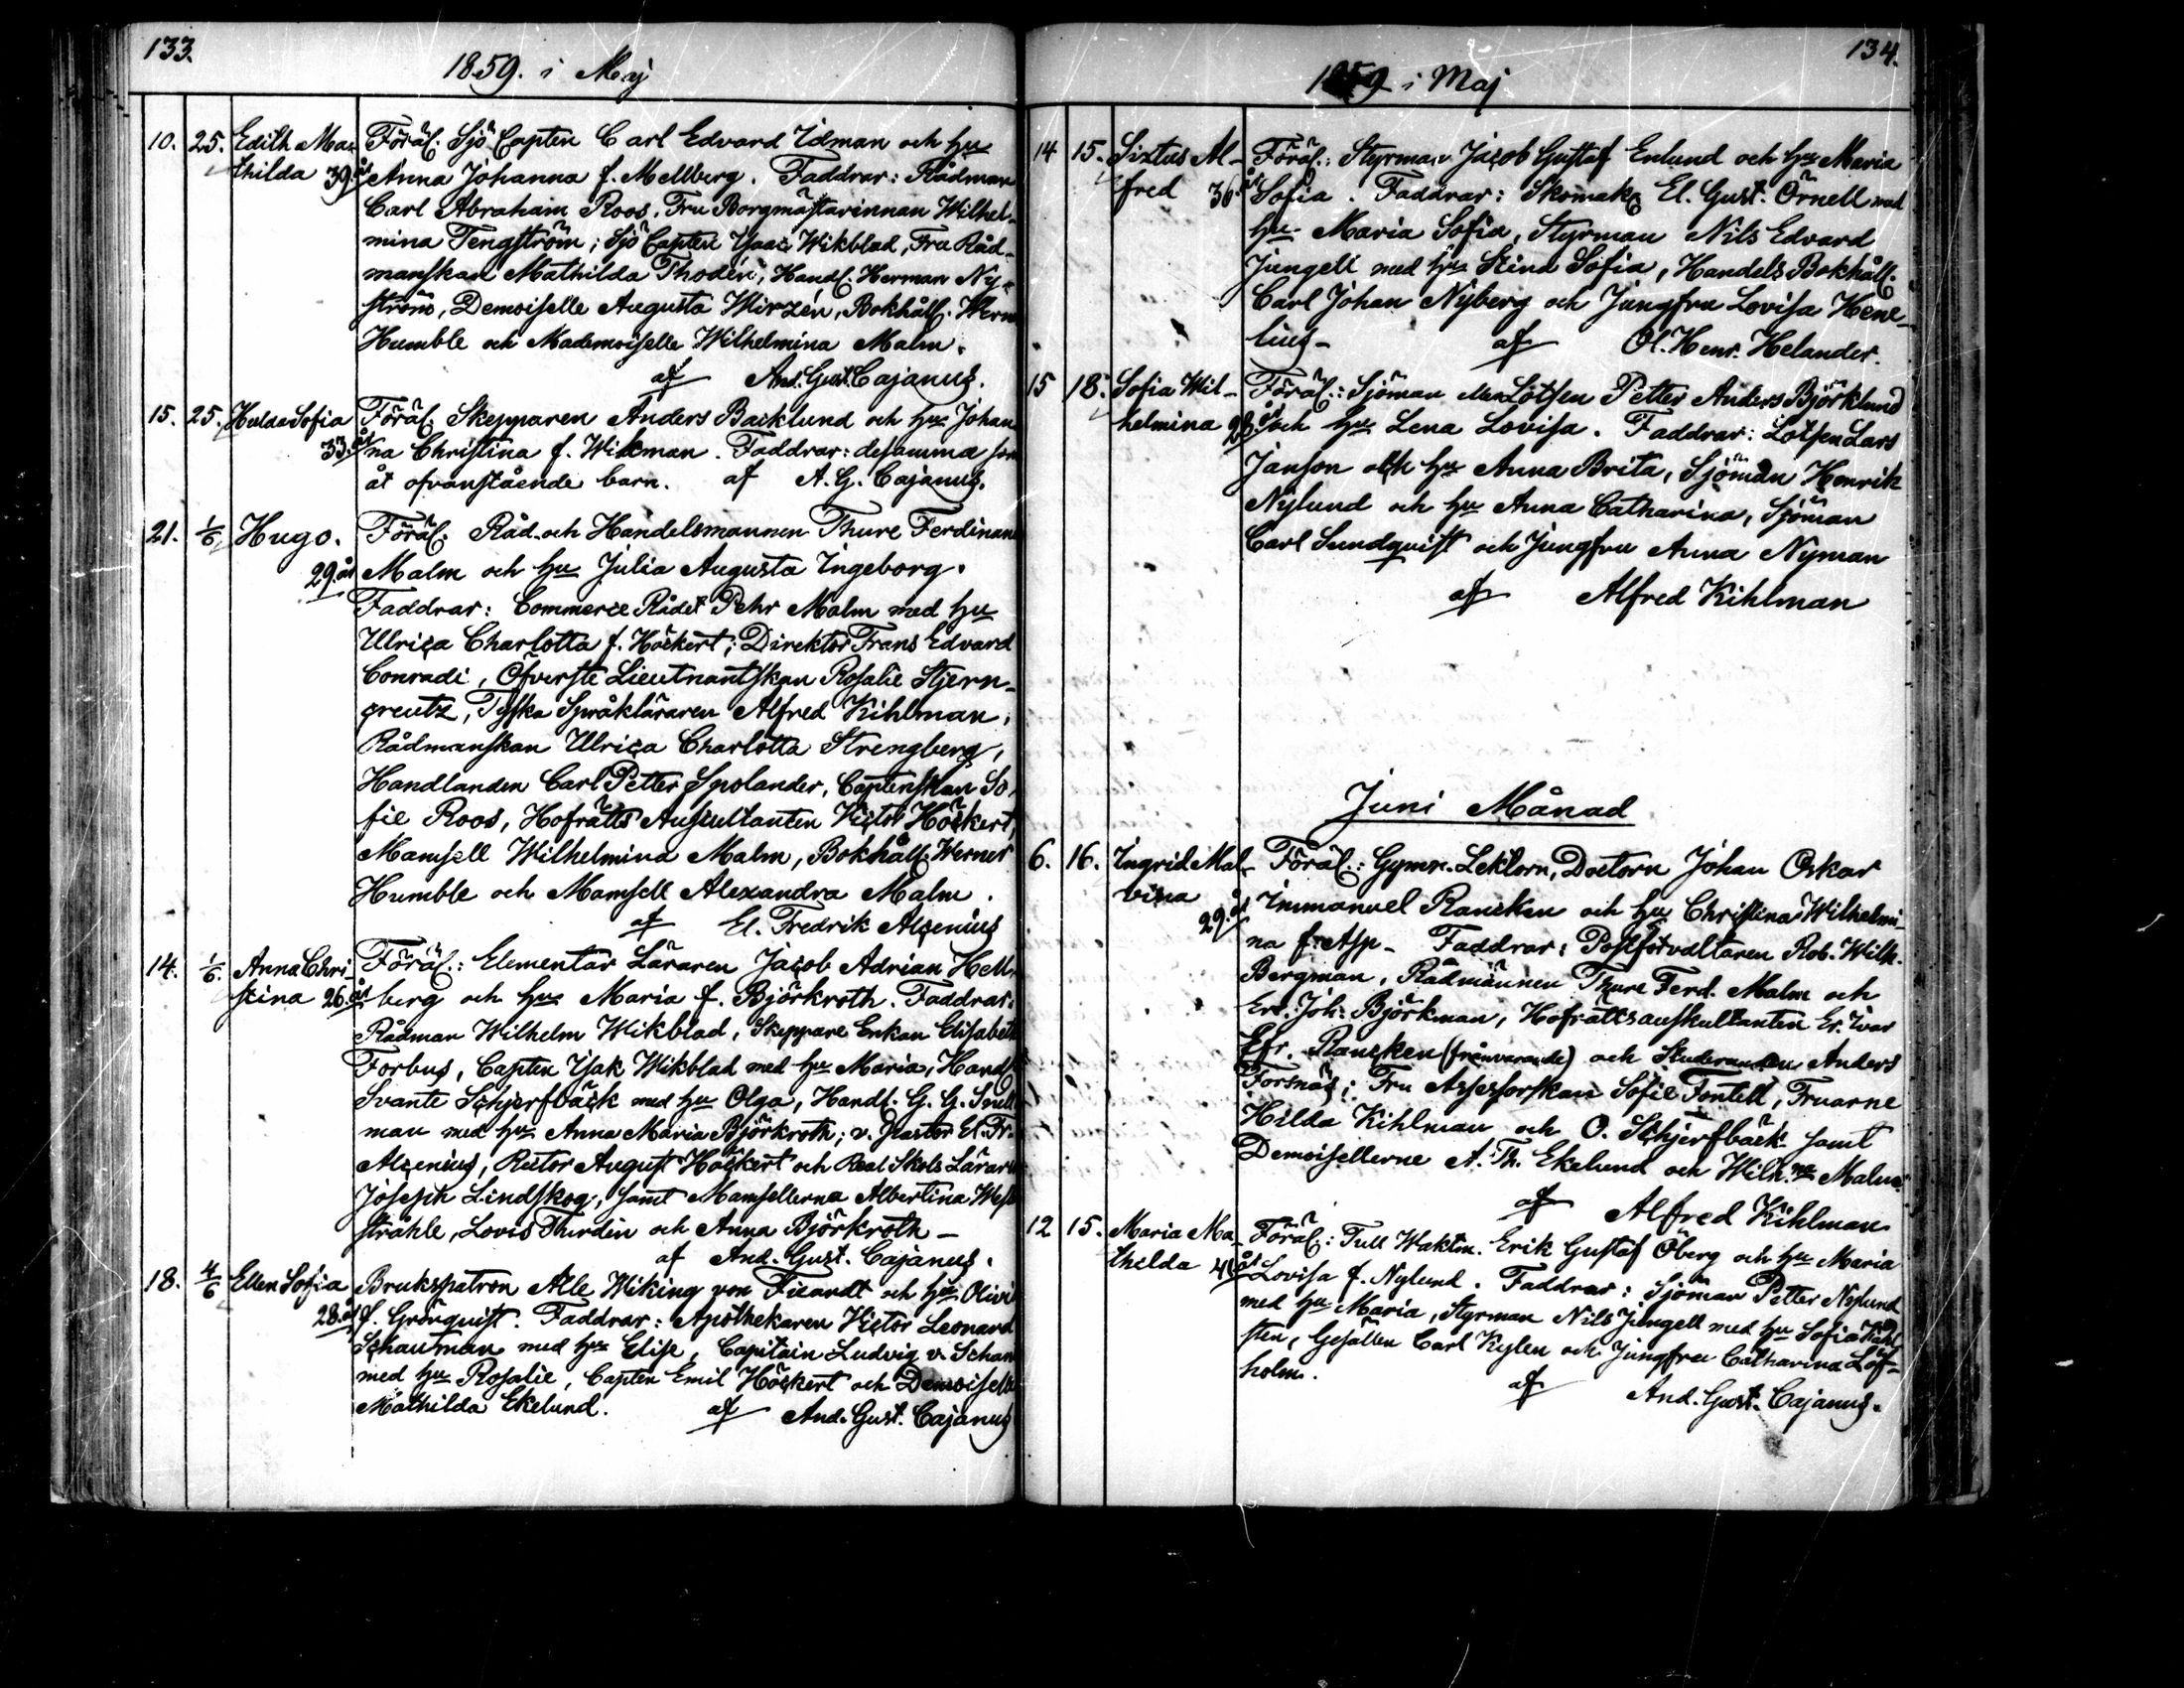 133.
1859. i Maj
10. 25. Edith Ma- Föräl. Sjö Capten Carl Edvard Idman och hu
thilda 39. år Anna Johanna f. Mellberg. Faddrar: Rådman
Carl Abraham Roos, Fru Borgmästarinnan Wilhel-
mina Tengström; Sjö Capten Isaac Wikblad, Fru Råd-
manskan Mathilda Thodén, Handl. Herman Ny-
ström, Demoiselle Augusta Wirzén, Bokhåll. Wern
Humble och Mademoiselle Wilhelmina Malm.
af And. Gust. Cajanus.
15. 25. Hulda Sofia Föräl. Skepparen Anders Backlund och hu Johan
33. år na Christina f. Wikman. Faddrar: desamma som
åt ofvanstående barn. af A. G. Cajanus.
21. 1/6 Hugo. Föräl. Råd- och Handelsmannen Thure Ferdinand
29. år Malm och hu Julia Augusta Ingeborg.
Faddrar: Commerce Rådet Pehr Malm med hu
Ulrica Charlotta f. Höckert; Direktor Frans Edvard
Conradi, Öfverste Lieutnantskan Rosalie Stjern-
creutz, Tyska Språkläraren Alfred Kihlman,
Rådmanskan Ulrica Charlotta Strengberg,
Handlanden Carl Petter Spolander, Captenskan So-
fie Roos, Hofrätts Auscultanten Victor Höckert,
Mamsell Wilhelmina Malm, Bokhåll. Werner
Humble och Mamsell Alexandra Malm.
af El. Fredrik Alcenius
14. 1/6. Anna Chri- Föräl.: Elementar Läraren Jacob Adrian Hell-
stina 26. år berg och hu Maria f. Björkroth. Faddrar:
Rådman Wilhelm Wikblad, Skeppare Enkan Elisabeth
Forbus, Capten Isak Wikblad med hu Maria, Handl
Svante Schjerfbäck med hu Olga, Handl. G. G. Snell
man med hu Anna Maria Björkroth; v. Pastor El. Fr.
Alcenius, Rector August Höckert och Real Skols Lärar
Joseph Lindskog, samt Mamsellerna Albertina West
stråhle, Lovis Thurdin och Anna Björkroth –
af And. Gust. Cajanus.
18. 4/6 Ellen Sofia Brukspatron Alle Wiking von Fieandt och hu Olivi
28. år f. Grönquist. Faddrar: Apothekaren Victor Leonard
Schauman med hu Elise, Capitain Ludvig v. Schan
med hu Rosalie, Capten Emil Höckert och Demoiselle
Mathilda Ekelund. af And. Gust. Cajanus
134.
1859 i Maj
14 15. Sixtus Al- Föräl.: Styrman Jacob Gustaf Enlund och hu Maria
fred 36. år Sofia. Faddrar: Skomak El. Gust. Örnell med
hu Maria Sofia, Styrman Nils Edvard
Jungell med hu Stina Sofia, Handels Bokhåll.
Carl Johan Nyberg och Jungfru Lovisa Hene-
lius – af Ol. Henr. Helander.
15 18. Sofia Wil- Föräl.: Sjöman Lotsen Petter Anders Björklund
helmina 28 år och hu Lena Lovisa. Faddrar: Lotsen Lars
Janson och hu Anna Brita, Sjöman Henrik
Nylund och hu Anna Catharina, Sjöman
Carl Sundquist och Jungfru Anna Nyman
af Alfred Kihlman
Juni Månad
6. 16. Ingrid Mal- Föräl.: Gymn. Lektorn, Doctorn Johan Oskar
vina 29. år Immanuel Rancken och hu Christina Wilhelmi-
na f. Asp – Faddrar: Postförvaltaren Rob. Wilh.
Bergman, Rådmännen Thure Ferd. Malm och
Er. Joh. Björkman, Hofrättsauskultanten Er. Ivar
Efr. Rancken (frånvarande) och Studeranden Anders
Forsnäs; Fru Assessorskan Sofie Fontell, Fruarne
Hilda Kihlman och O. Schjerfbäck samt
Demoisellerne A. Th. Ekelund och Wilh.na Malm.
af Alfred Kihlman
12 15. Maria Ma- Föräl.: Tull Waktm. Erik Gustaf Öberg och hu Maria
thilda 41 år Lovisa f. Nylund. Faddrar: Sjöman Petter Nylund
med hu Maria, Styrman Nils Jungell med hu Sofia
sten, Gesällen Carl Kylen och Jungfru Catharina Löf-
holm. af And. Gust. Cajanus.